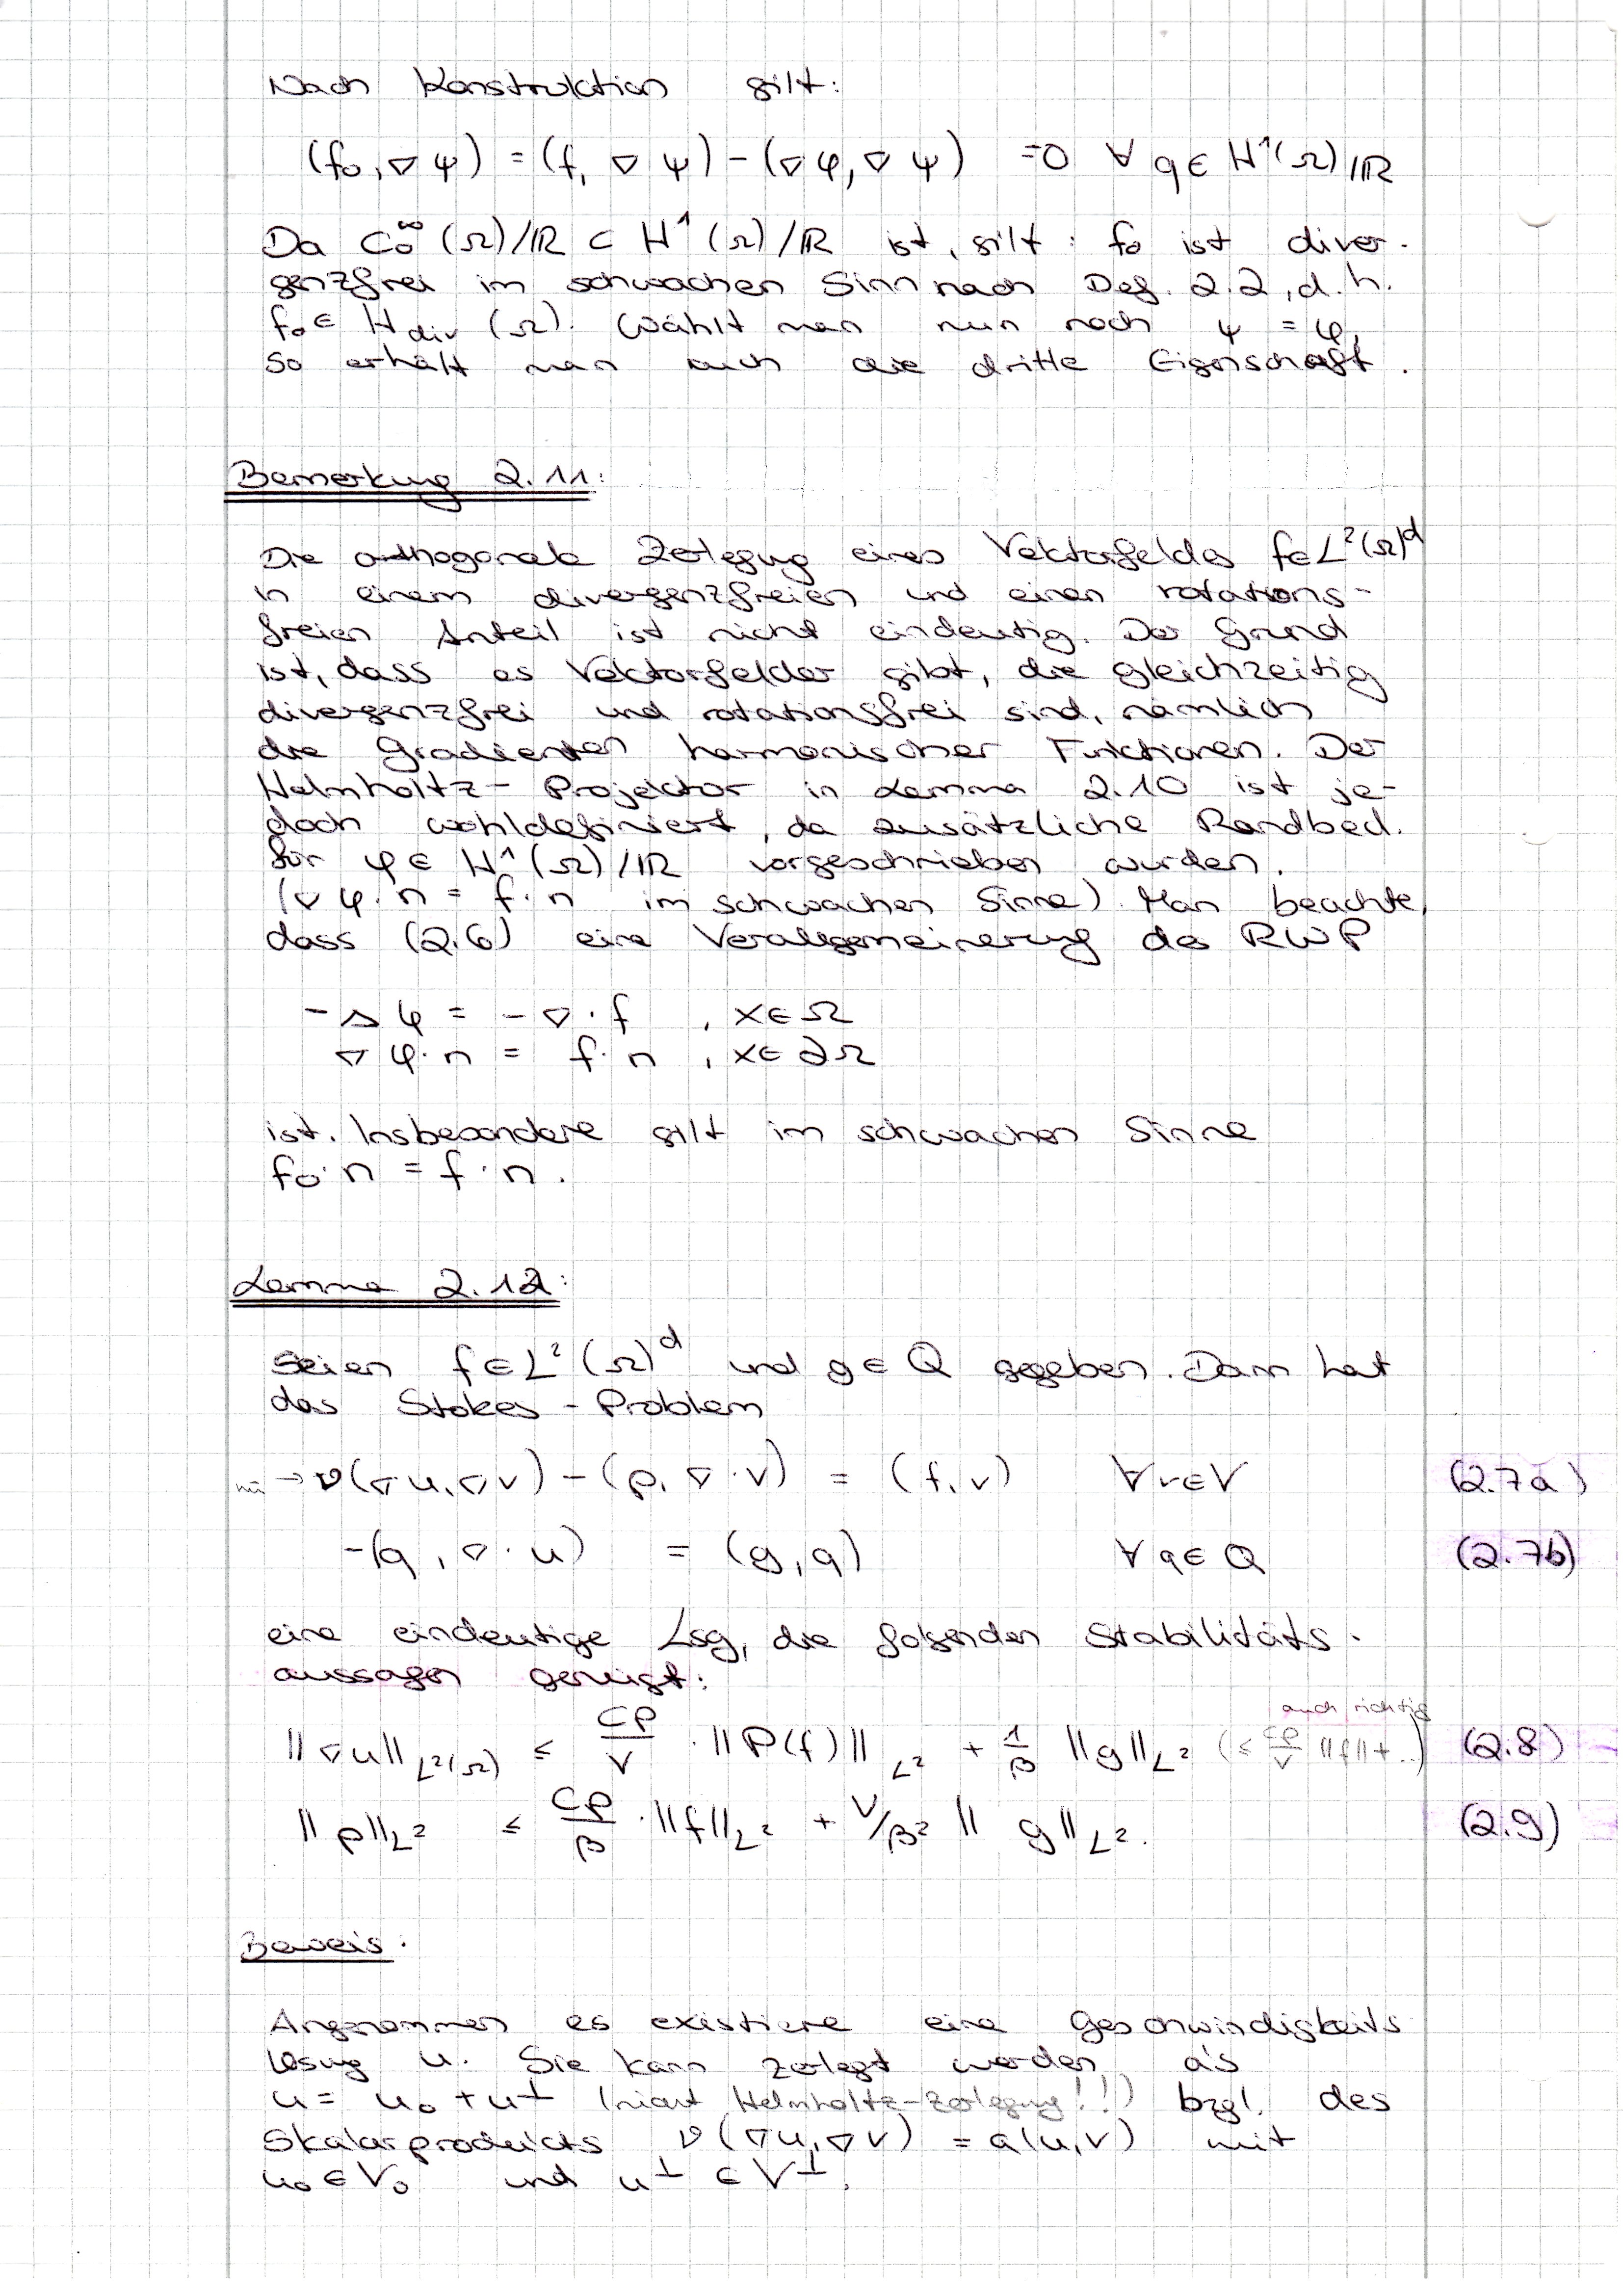 Nach Konstruktion gilt:
(f₀, ∇ψ) = (f, ∇ψ) − (∇φ, ∇ψ) = 0 ∀ q ∈ H¹(Ω)/ℝ
Da C₀^∞(Ω)/ℝ ⊂ H¹(Ω)/ℝ ist, gilt: f₀ ist diver-
genzfrei im schwachen Sinn nach Def. 2.2, d.h.
f₀ ∈ H_div(Ω). Wählt man nun noch ψ = φ,
so erhält man auch die dritte Eigenschaft.
Bemerkung 2.11:
Die orthogonale Zerlegung eines Vektorfeldes f∈L²(Ω)^d
in einem divergenzfreien und einen rotations-
freien Anteil ist nicht eindeutig. Der Grund
ist, dass es Vektorfelder gibt, die gleichzeitig
divergenzfrei und rotationsfrei sind, nämlich
die Gradienten harmonischer Funktionen. Der
Helmholtz-Projektor in Lemma 2.10 ist je-
doch wohldefiniert, da zusätzliche Randbed.
für φ ∈ H¹(Ω)/ℝ vorgeschrieben wurden.
(∇φ·n = f·n im schwachen Sinne). Man beachte,
dass (2.6) eine Verallgemeinerung des RWP
−Δφ = −∇·f , x∈Ω
∇φ·n = f·n , x∈∂Ω
ist. Insbesondere gilt im schwachen Sinne
f₀·n = f·n.
Lemma 2.12:
Seien f∈L²(Ω)^d und g∈Q gegeben. Dann hat
das Stokes-Problem
nü → ν(∇u, ∇v) − (p, ∇·v) = (f, v) ∀v∈V (2.7a)
−(q, ∇·u) = (g, q) ∀q∈Q (2.7b)
eine eindeutige Lsg, die folgenden Stabilitäts-
aussagen genügt:
auch richtig
‖∇u‖_{L²(Ω)} ≤ CP/ν · ‖P(f)‖_{L²} + 1/β ‖g‖_{L²} (≤ CP/ν ‖f‖+...) (2.8)
‖p‖_{L²} ≤ CP/β · ‖f‖_{L²} + ν/β² ‖g‖_{L²}. (2.9)
Beweis:
Angenommen es existiere eine Geschwindigkeits
lösung u. Sie kann zerlegt werden als
u = u₀ + u^⊥ (nicht Helmholtz-Zerlegung!!!) bzgl. des
Skalarprodukts ν(∇u, ∇v) = a(u,v) mit
u₀ ∈ V₀ und u^⊥ ∈ V^⊥.